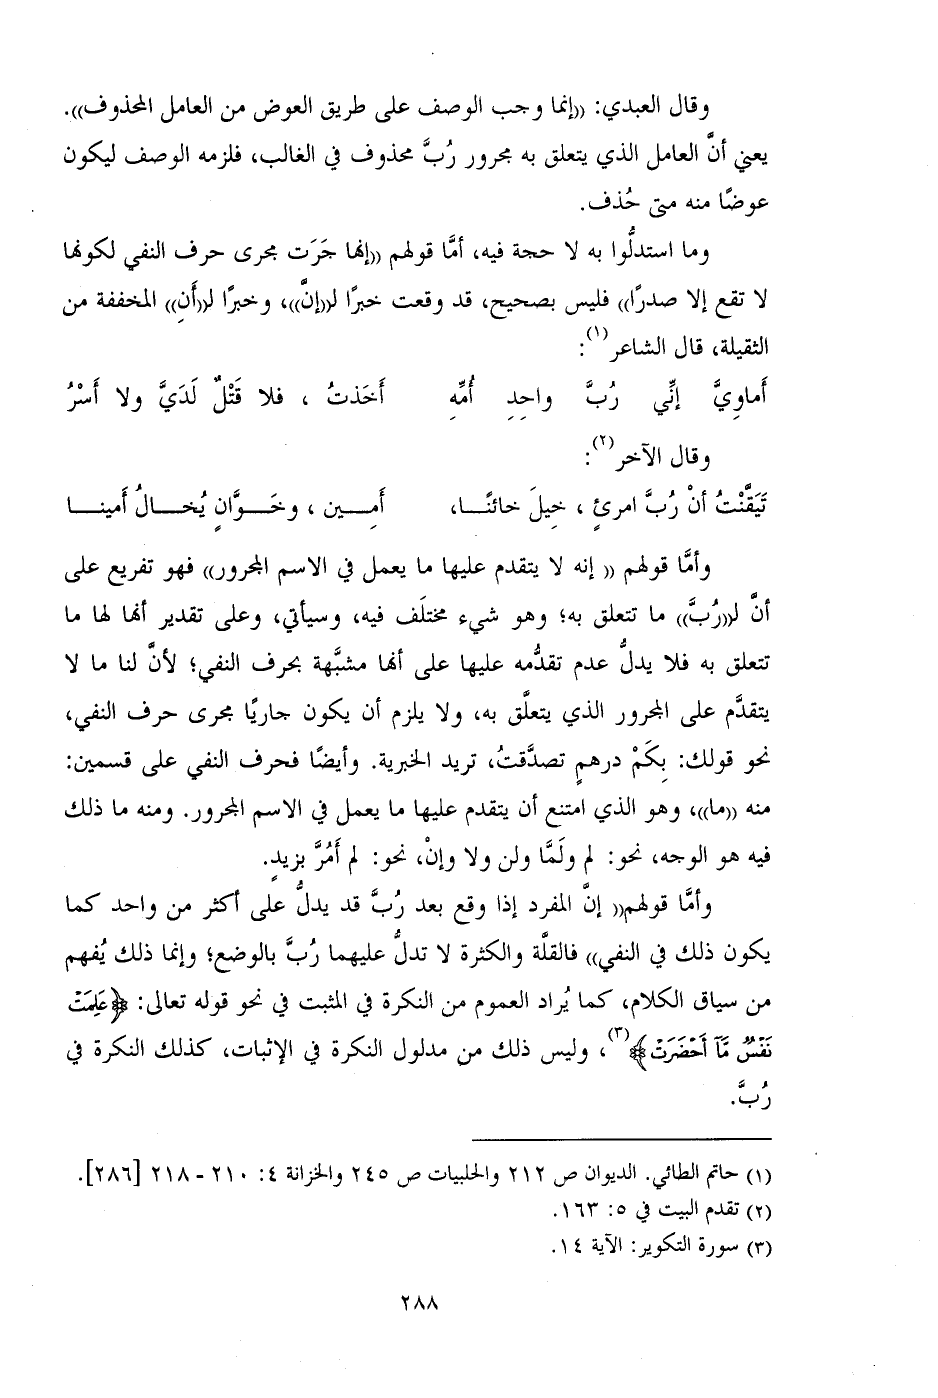 وقال العبدي: ((إنما وجب الوصف على طريق العوض من العامل المحذوف)).
يعني أنَّ العامل الذي يتعلق به مجرور رُبَّ محذوف في الغالب، فلزمه الوصف ليكون
عوضًا منه متى حُذف.
وما استدلُّوا به لا حجة فيه، أمَّا قولهم ((إنها جَرَت مجرى حرف النفي لكونها
لا تقع إلا صدرًا)) فليس بصحيح، قد وقعت خبرًا لـ((إنَّ))، وخبرًا لـ((أَنِ)) المخففة من
الثقيلة، قال الشاعر(١):
أَماوِيَّ إنِّي رُبَّ واحِدِ أُمِّهِ أَخَذتُ ، فلا قَتْلٌ لَدَيَّ ولا أَسْرُ
وقال الآخر(٢):
تَيَقَّنْتُ أنْ رُبَّ امرئٍ ، خِيلَ خائنًا، أَمِين ، وخَوَّانٍ يُخالُ أَمينا
وأمَّا قولهم (( إنه لا يتقدم عليها ما يعمل في الاسم المجرور)) فهو تفريع على
أنَّ لـ((رُبَّ)) ما تتعلق به؛ وهو شيء مختلَف فيه، وسيأتي، وعلى تقدير أنها لها ما
تتعلق به فلا يدلُّ عدم تقدُّمه عليها على أنها مشبَّهة بحرف النفي؛ لأنَّ لنا ما لا
يتقدَّم على المجرور الذي يتعلَّق به، ولا يلزم أن يكون جاريًا مجرى حرف النفي،
نحو قولك: بِكَمْ درهمٍ تصدَّقتُ، تريد الخبرية. وأيضًا فحرف النفي على قسمين:
منه ((ما))، وهو الذي امتنع أن يتقدم عليها ما يعمل في الاسم المجرور. ومنه ما ذلك
فيه هو الوجه، نحو: لم ولَمَّا ولن ولا وإنْ، نحو: لم أَمُرَّ بزيدٍ.
وأمَّا قولهم(( إنَّ المفرد إذا وقع بعد رُبَّ قد يدلُّ على أكثر من واحد كما
يكون ذلك في النفي)) فالقلَّة والكثرة لا تدلُّ عليهما رُبَّ بالوضع؛ وإنما ذلك يُفهم
من سياق الكلام، كما يُراد العموم من النكرة في المثبت في نحو قوله تعالى: ﴿عَلِمَتْ
نَفْسٌ مَّآ أَحْضَرَتْ﴾(٣)، وليس ذلك من مدلول النكرة في الإثبات، كذلك النكرة في
رُبَّ.
(١) حاتم الطائي. الديوان ص ٢١٢ والحلبيات ص ٢٤٥ والخزانة ٤: ٢١٠ - ٢١٨ [٢٨٦].
(٢) تقدم البيت في ٥: ١٦٣.
(٣) سورة التكوير: الآية ١٤.
٢٨٨